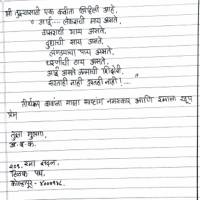 मी तुझ्यासाठी एक कविता लिहिली आहे,
" आई .... लेकराची माय असते,
वासराची गाय असते,
दुधाची साय असते,
लंगड्याचा पाय असते,
धरणीची ठाय असते,
आई असते जन्माची शिदोरी,
सरतही नाही उरतही नाही ! ...
तीर्थरूप बाबांना माझा साष्टांग नमस्कार आणि खूप
प्रेम
तुझा मुलगा,
अ. ब. क.
सदन,
टिळक पथ,
कोल्हापूर -